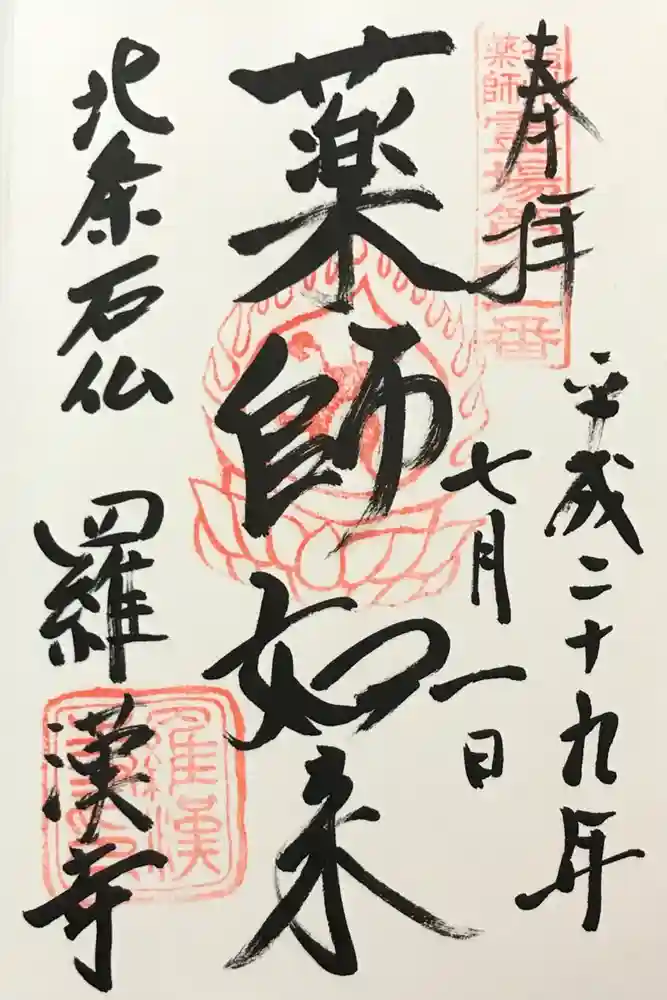 奉拝
平成二十九年
七月一日
薬師如来
北条石仏
羅漢寺
薬師霊場第
番
羅漢